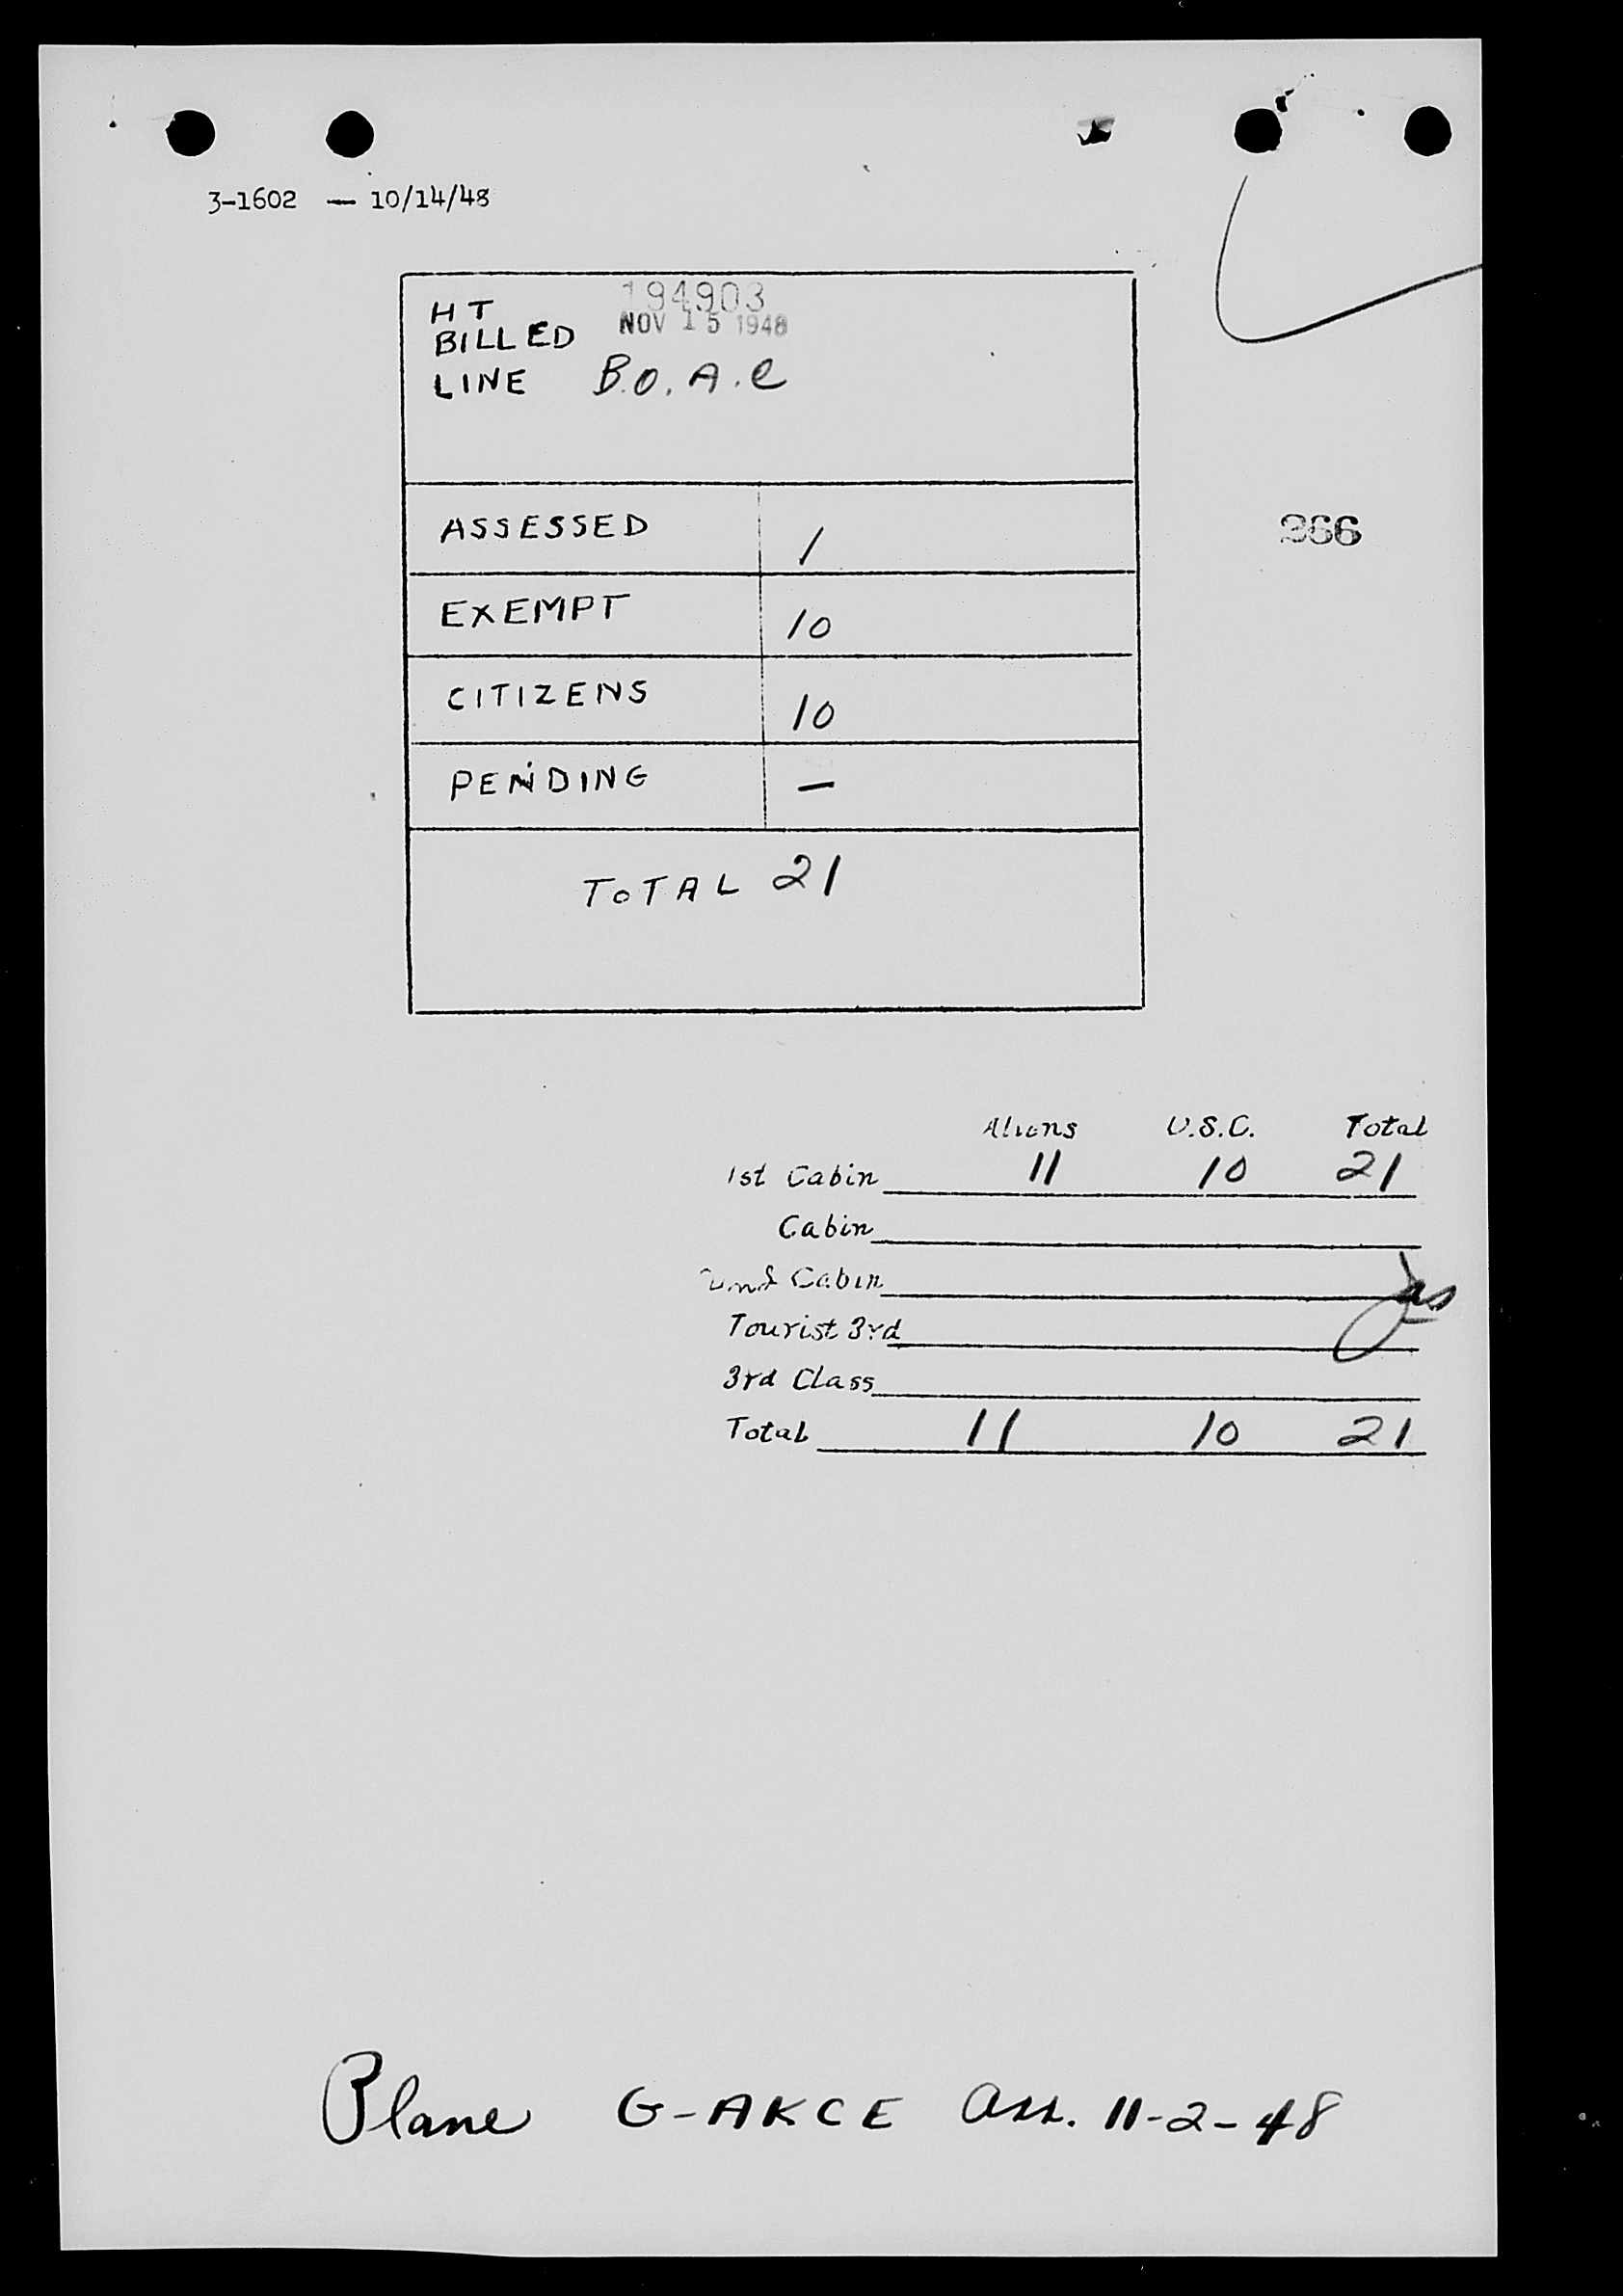 3-1602 — 10/14/48
HT 194903
BILLED NOV 15 1948
LINE B.O.A.C
ASSESSED 1
366
EXEMPT 10
CITIZENS 10
PENDING —
TOTAL 21
Aliens U.S.C. Total
1st Cabin 11 10 21
Cabin
Cabin
Tourist 3rd
3rd Class
Total 11 10 21
Plane G-AKCE Arr. 11-2-48